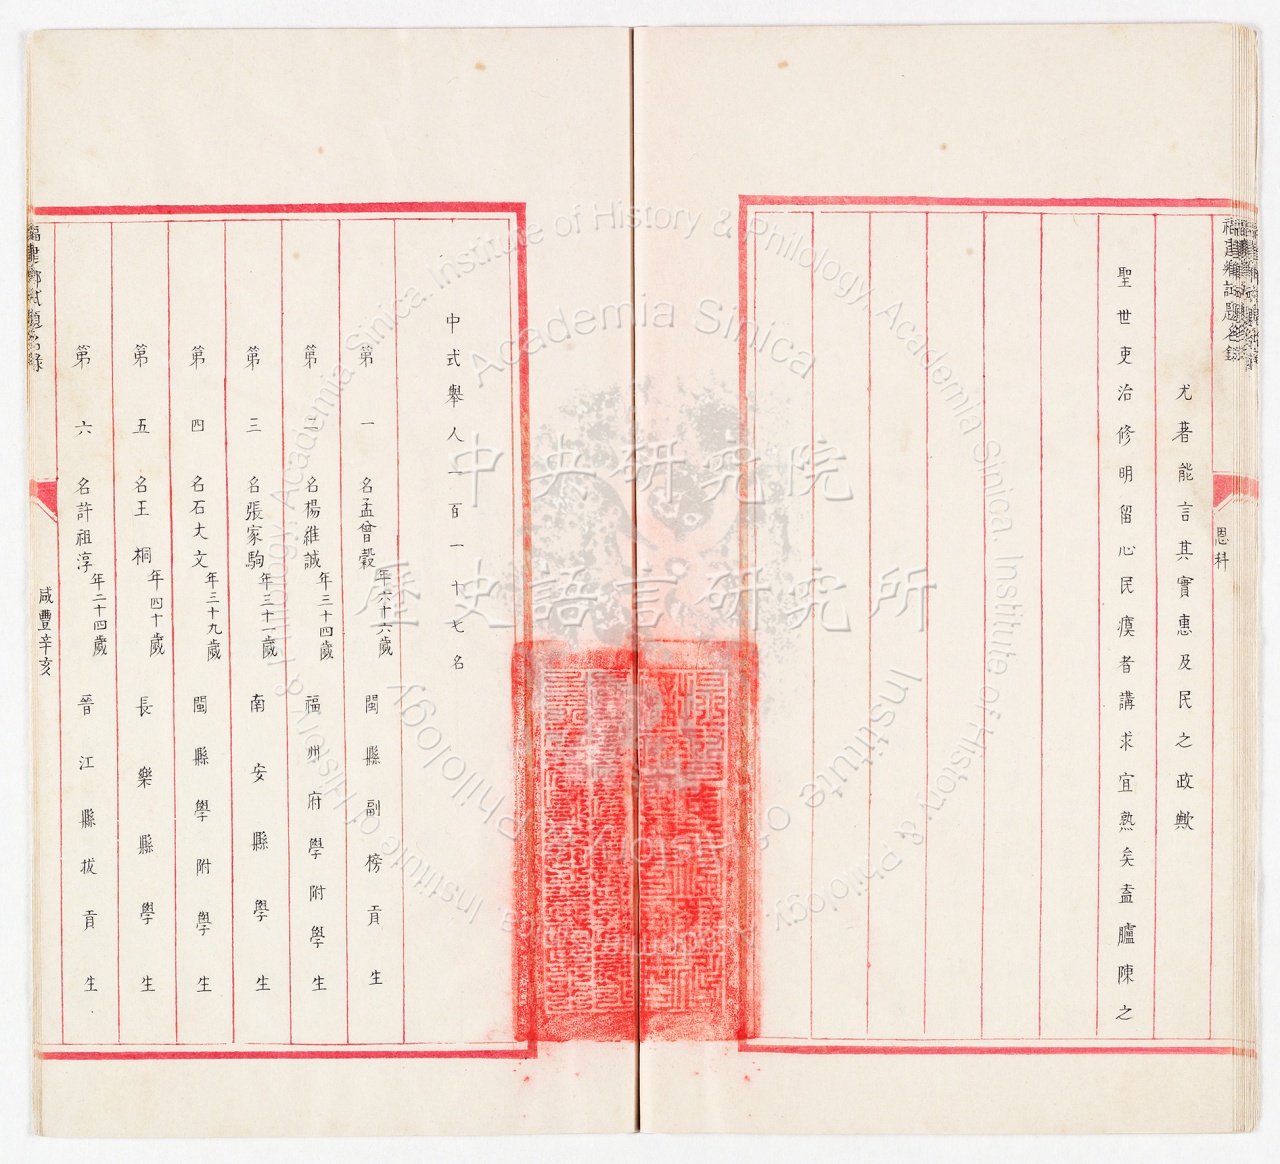 福建鄉試題名錄
恩科
尤著能言其實惠及民之政歟
聖世吏治修明留心民瘼者講求宜熟矣盍臚陳之
中式舉人一百一十七名
第一名孟曾穀年六十六歲閩縣副榜貢生
第二名楊維誠年三十四歲福州府學附學生
第三名張家駒年三十一歲南安縣學生
第四名石大文年三十九歲閩縣學附學生
第五名王桐年四十歲長樂縣學生
第六名許祖淳年二十四歲晉江縣拔貢生
福建鄉試題名錄
咸豐辛亥
中央研究院
歷史語言研究所
Academia Sinica
Institute of History & Philology, Academia Sinica. Institute of History & Philology